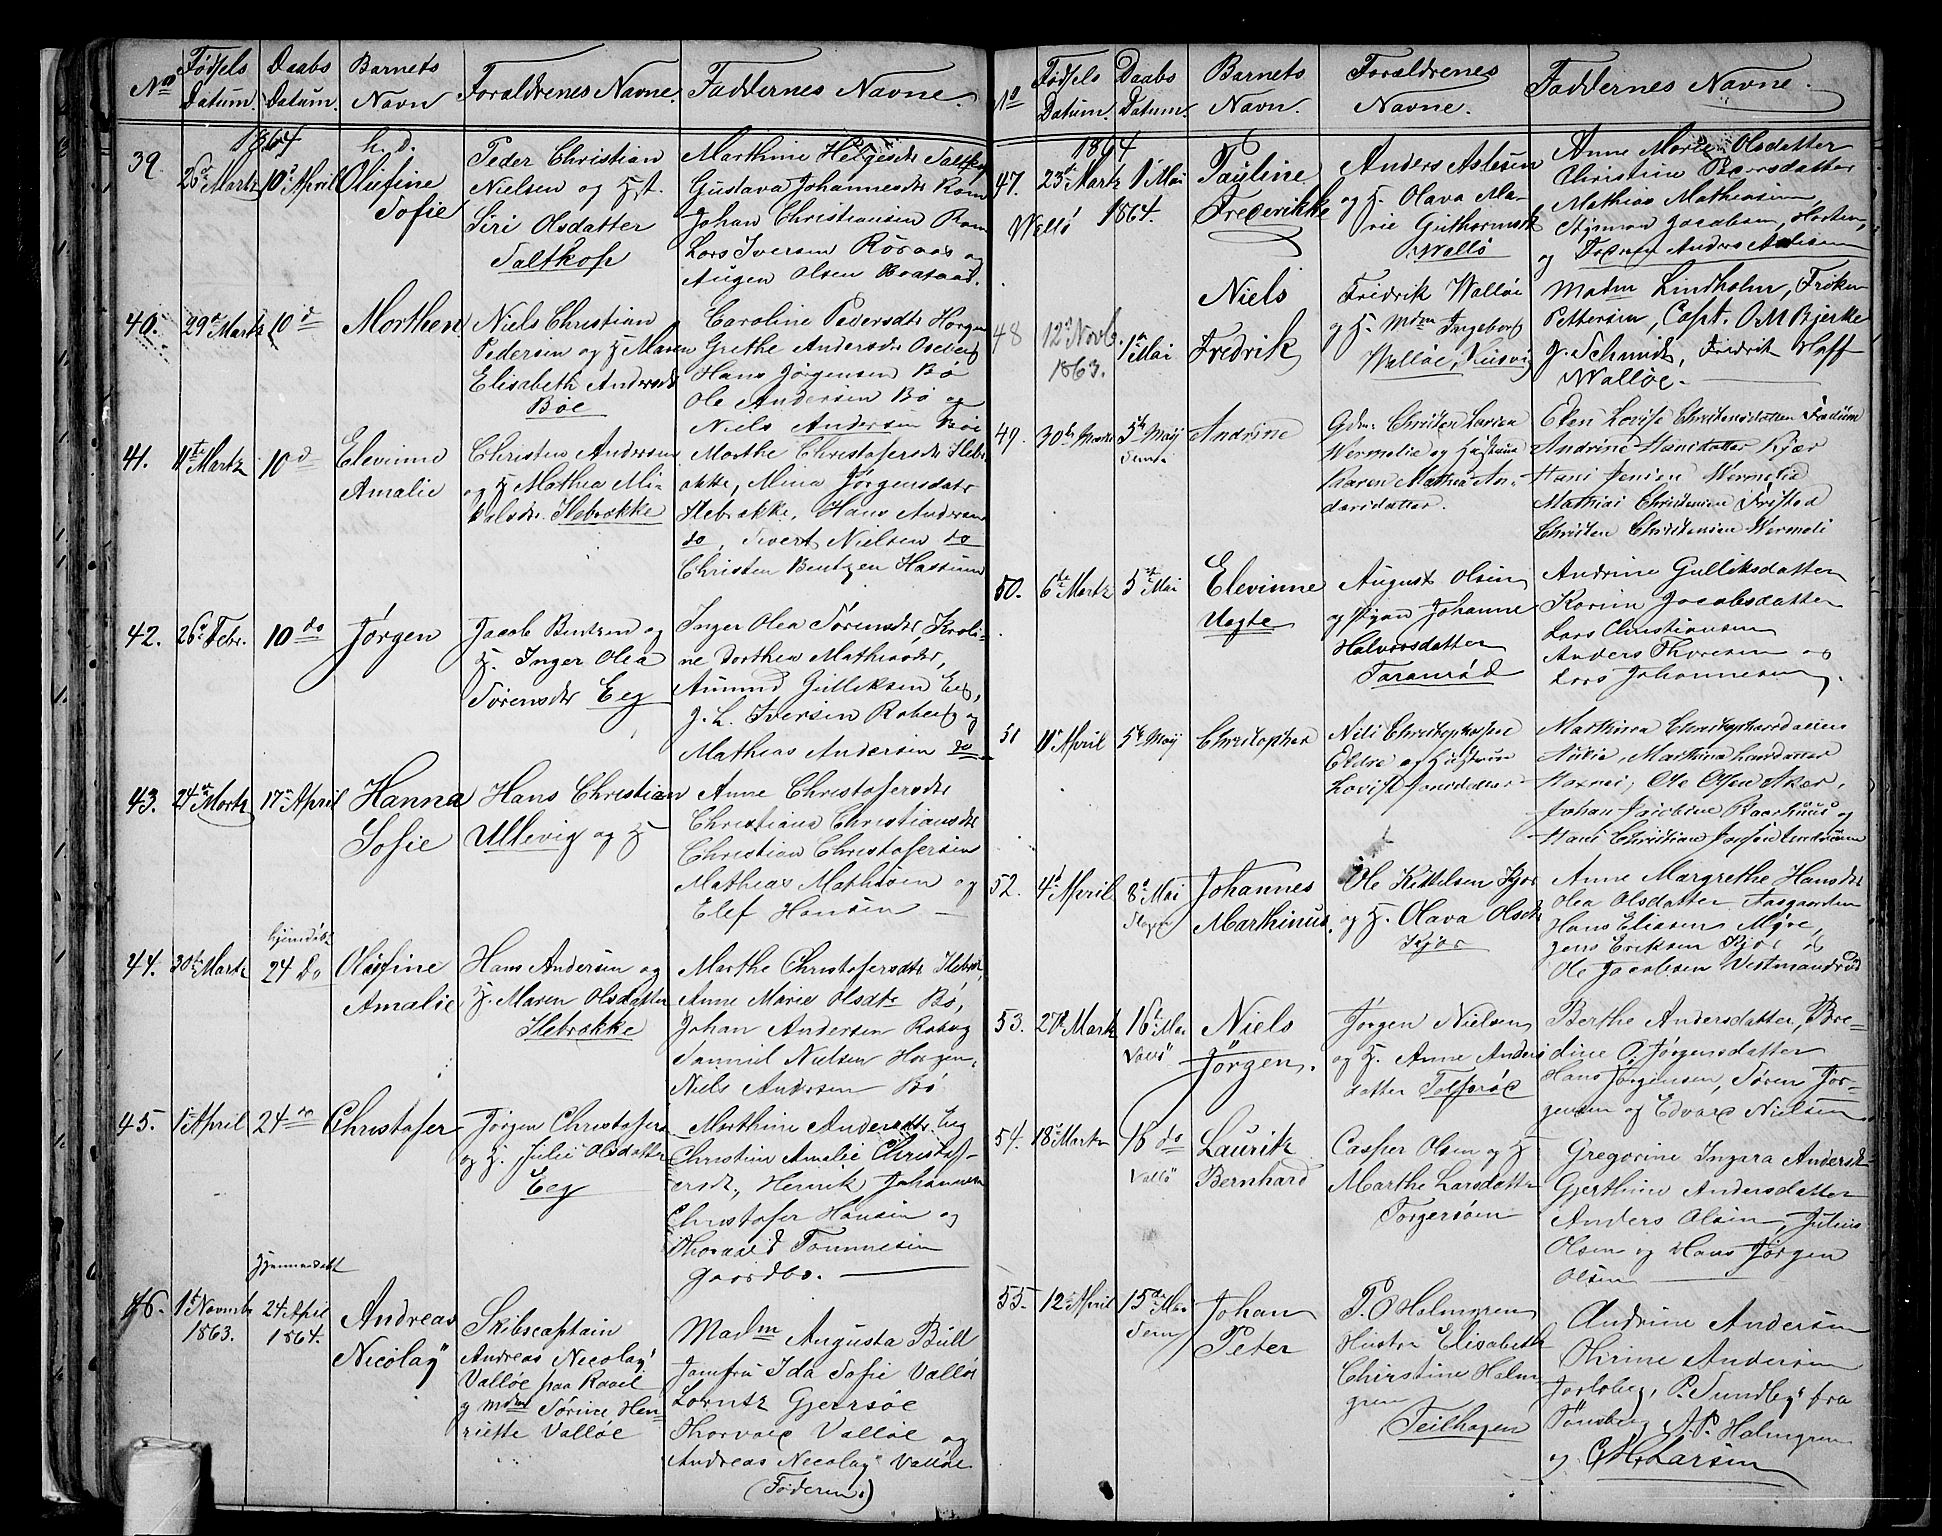 No
Fødsels Datum.
Daabs Datum.
Barnets Navn
Forældrenes Navne.
Faddernes Navne.
1864
39. 26de Martz 10de April
h. d.
Olufine
Sofie
Peder Christian
Nielsen og H.
Siri Olsdatter
Saltkop
Marthine Helgesdtr Saltkop
Gustava Johannesdtr Rom
Johan Christiansen Rom
Lars Iversen Röraas og
Augen Olsen
40. 29de Martz 10 d
Morthen
Niels Christian
Pedersen og H Maren
Elisabeth Andersdtr
Bøe
Caroline Pedersdtr Horgen
Grethe Andersdtr Oseberg
Hans Jørgensen Bö
Ole Andersen Bö og
Niels Andersen Böe
41. 11te Martz 10 d
Elevinne
Amalie
Christen Andersen
og H Mathea Mi-
kelsdtr. Ilebrække
Marthe Christofersdtr Ileb-
række, Mina Jörgensdatr
Ilebrække, Hans Andersen
do, Sivert Nielsen do
Christen Bentzen Hassum
42. 26de Febr. 10 do
Jørgen
Jacob Bentzen og
H. Inger Olea
Sörensdtr Eeg
Inger Olea Sörensdtr, Kroli-
ne Dorthea Mathiasdtr,
Amund Gulliksen Eeg,
J. L. Iversen Roberg og
Mathias Andersen do
43. 24de Martz 17de April
Hanna
Sofie
Hans Christian
Ullevig og H
Anne Christofersdtr
Christiana Christiansdtr
Christian Christofersen
Mathias Mathisen og
Elef Hansen
44. 30te Martz
hjemdøbt
24 Do
Olufine
Amalie
Hans Andersen og
H. Maren Olsdatter
Ilebrække
Marthe Christofersdtr Ilebræk,
Anne Marie Olsdtr Bö,
Johan Andersen Roberg
Samuel Nielsen Horgen,
Niels Andersen Bö
45. 1ste April 24 do
Christofer
Jörgen Christofersen
og H. Julie Olsdatter
Eeg
Marthine Andersdtr Eeg
Christine Amalie Christof-
ersdt., Henrik Johannesen
Christofer Hansen og
Thorvald Tommesen
Gaordbo.
46. 1ste Novmb. 1863.
Hjemmedøbt
24 April 1864.
Andreas
Nicolay
Skibscaptain
Andreas Necolay
Valløe paa Ravel
og Mdm Sørine Hen-
riette Valløe
Madm Augusta Bull
Jomfru Ida Sofie Valløe
Lorntz Gjersøe
Thorvald Valløe og
Andreas Necolay Valløe
(Faderen.)
No
Fødsels Datum.
Daabs Datum.
Barnets Navn.
Forældrenes Navne.
Faddernes Navne.
1864
47. 23de Martz 1 Mai
Wallö 1864.
Pauline
Frederikke
Anders Aslesen
og H. Olava Ma-
rie Guthormsdt
Wallö
Anne Marie Olsdatter
Christine Pedersdatter
Mathias Mathiesen,
Jacobsen, Horten,
og Anders Aslesen
48 12te Novb. 1863. 1ste Mai
Niels
Fredrik
Fridrik Walløe
og H. Mdm Ingeborg
Walløe, Husvig
Madm Lindholm, Frøken
Pettersen, Capt. O M Bjerke
J. Schmidt, Fredrik Hoff
Walløe.
49. 30te Martz 5te Maij
Sem
Andrine
Gdm. Christen Larsen
Wermelie og Hustrue
Karen Mathea An-
dersdatter.
Elen Lovise Christensdatter Fadum
Andrine Hansdatter Kjær
Hans Jensen Wermelie
Mathias Christensen Fristad
Christen Christensen Wermeli
50. 6te Martz 5te Mai
Elevinne
Uegte
August Olsen
og Pigen Johanne
Halvorsdatter
Taranrød
Andrine Gulliksdatter
Karine Jacobsdatter
Lars Christiansen
Anders Thoresen og
Lars Johannesen
51 11te April 5te Maij
Christopher
Nils Christophersen
Ekene og Hustrue
Lovise Jensdatter
Marthina Christophersdatter
Marthina Larsdatter
Ole Olsen Aker,
Johan Jacobsen Baarhuus og
Hans Christian Jacobsen
52. 4de April 8de Mai
Slagen
Johannes
Marthinus.
Ole Kittelsen Kjær
og H. Olava Olsdt
Kjær
Anne Margrethe Hansdtr
Olea Olsdatter Aasgaarden
Hans Eliasen Myre,
Jens Eriksen Kjær og
Ole Jacobsen Vestmandrød
53. 27de Martz 16de Mai
Vallö
Niels
Jörgen.
Jörgen Nielsen
og H. Anne Anders
datter Tolfsröd
Berthe Andersdatter, Bre-
dine O. Jörgensdatter
Hans Jörgensen, Sören Jör-
gensen og Edvard Nielsen
54. 18de Martz 16 do
Vallö
Laurik
Bernhard
Casper Olsen og H
Marthe Larsdatter
Torgersøen
Gregorine Ingara Andersd
Gjerthine Andersdatter
Anders Olsen, Julius
Olsen og Hans Jörgen
Olsen
55. 12te April 15de Mai
Sem
Johan
Peter
P. O Holmgren
Hustru Elisabeth
Christine Holm
gren
Teilhagen
Andrine Andersen
Thrine Andersen
Jarlsberg, P. Sundby fra
Tønsberg, A. P. Holmgren
og C H Larsen